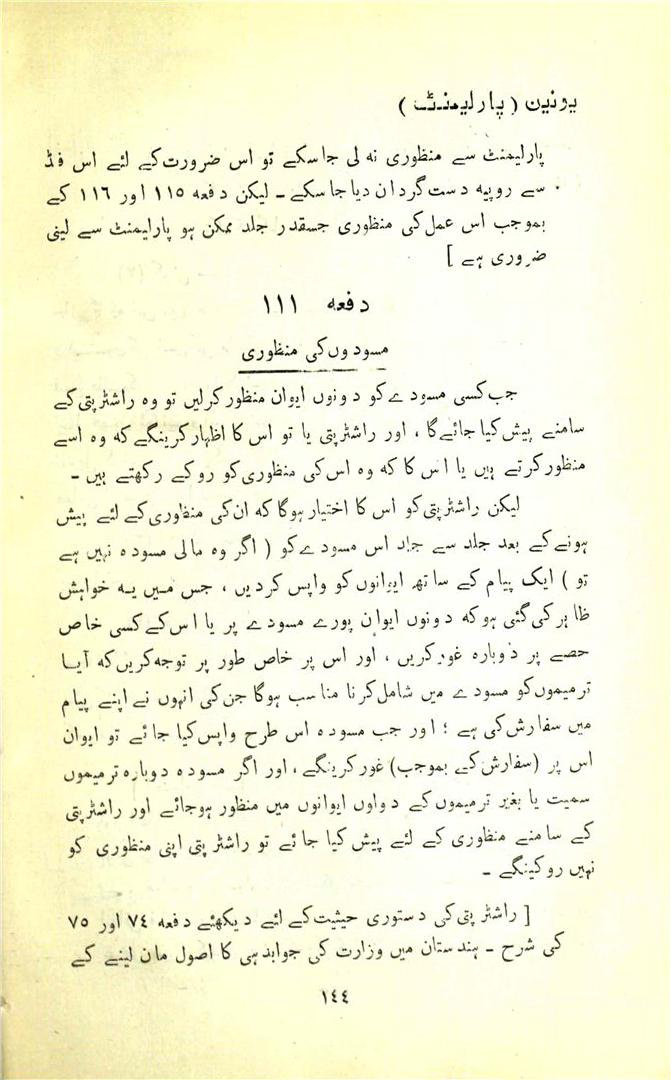 یونین ( پارلیمنٹ )
پارلیمنٹ سے منظوری نہ لی جاسکے تو اس ضرورت کے لئے اس فنڈ
سے روپیہ دست گردان دیا جاسکے ۔ لیکن دفعہ ۱۱۵ اور ۱۱٦ کے
بموجب اس عمل کی منظوری جسقدر جلد ممکن ہو پارلیمنٹ سے لینی
ضروری ہے ]
دفعہ ۱۱۱
مسودوں کی منظوری
جب کسی مسودے کو دونوں ایوان منظور کرلیں تو وہ راشٹرپتی کے
سامنے پیش کیا جائے گا ، اور راشٹرپتی یا تو اس کا اظہار کرینگے کہ وہ اسے
منظور کرتے ہیں یا اس کا کہ وہ اس کی منظوری کو روکے رکھتے ہیں ۔
لیکن راشٹرپتی کو اس کا اختیار ہوگا کہ ان کی منظوری کے لئے پیش
ہونے کے بعد جلد سے جلد اس مسودے کو ( اگر وہ مالی مسودہ نہیں ہے
تو ) ایک پیام کے ساتھ ایوانوں کو واپس کردیں ، جس میں یہ خواہش
ظاہر کی گئی ہو کہ دونوں ایوان پورے مسودے پر یا اس کے کسی خاص
حصے پر دوبارہ غور کریں ، اور اس پر خاص طور پر توجہ کریں کہ آیا
ترمیموں کو مسودے میں شامل کرنا مناسب ہوگا جن کی انہوں نے اپنے پیام
میں سفارش کی ہے ؛ اور جب مسودہ اس طرح واپس کیا جائے تو ایوان
اس پر (سفارش کے بموجب) غور کرینگے ، اور اگر مسودہ دوبارہ ترمیموں
سمیت یا بغیر ترمیموں کے دواوں ایوانوں میں منظور ہوجائے اور راشٹرپتی
کے سامنے منظوری کے لئے پیش کیا جائے تو راشٹرپتی اپنی منظوری کو
نہیں روکینگے ۔
[ راشٹرپتی کی دستوری حیثیت کے لئے دیکھئے دفعہ ۷٤ اور ۷۵
کی شرح ۔ ہندستان میں وزارت کی جوابدہی کا اصول مان لینے کے
۱٤٤